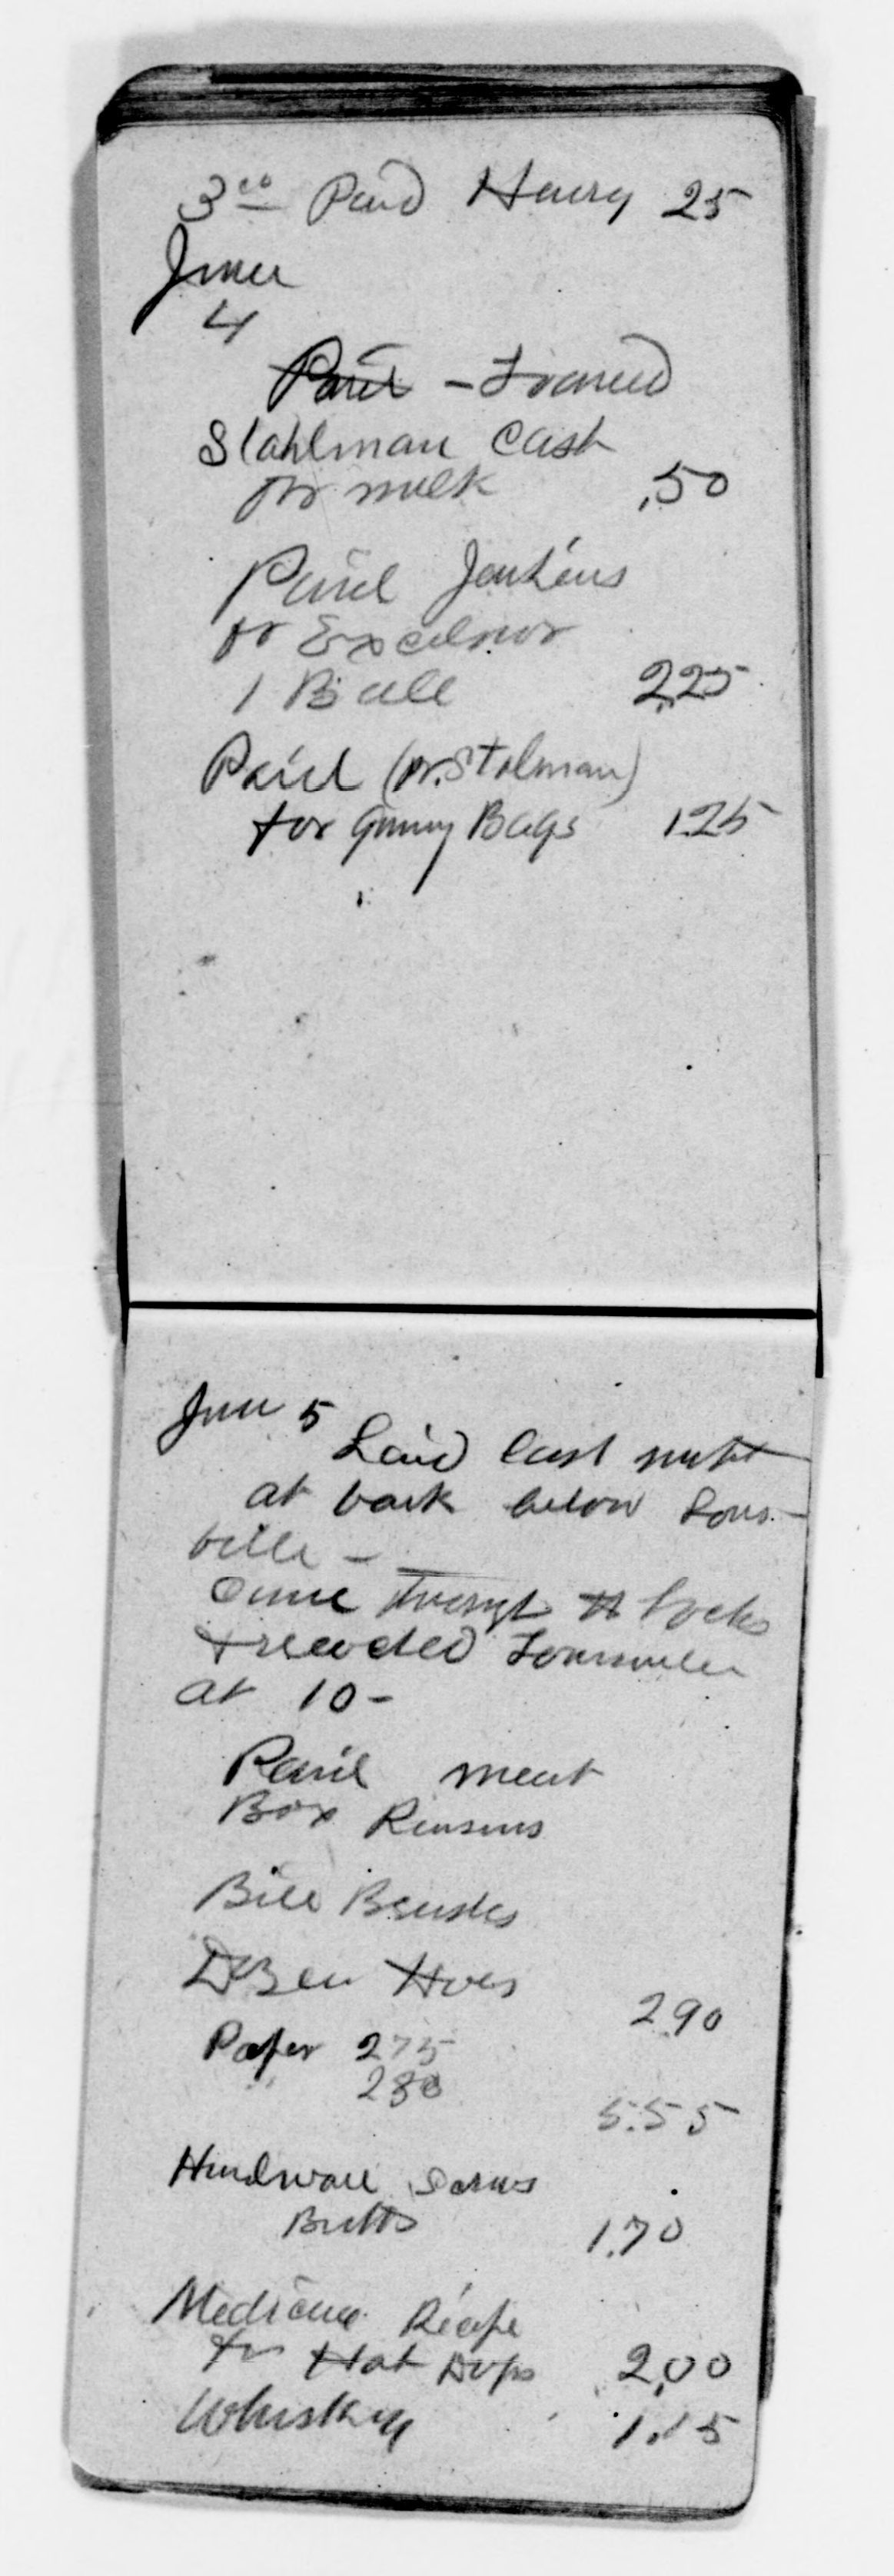 3rd Paid Harry 25
June
4
Paid - Loaned
Stahlman Cash
for milk .50
Paid Jenkins
for Excelsior
1 Bale 2.25
Paid (pr. Stolman)
for Gunny Bags 1.25
June 5
Laid last night
at bank below Louis-
ville -
Came through the locks
& reached Louisville
at 10 -
Paid meat
Box Raisins
Bill Brushes
Hoes 2.90
Paper 275
" 280 5.55
Hardware Screws
Butts 1.70
Medicine Recipe
for Hot Drops 2.00
Whiskey 1.15